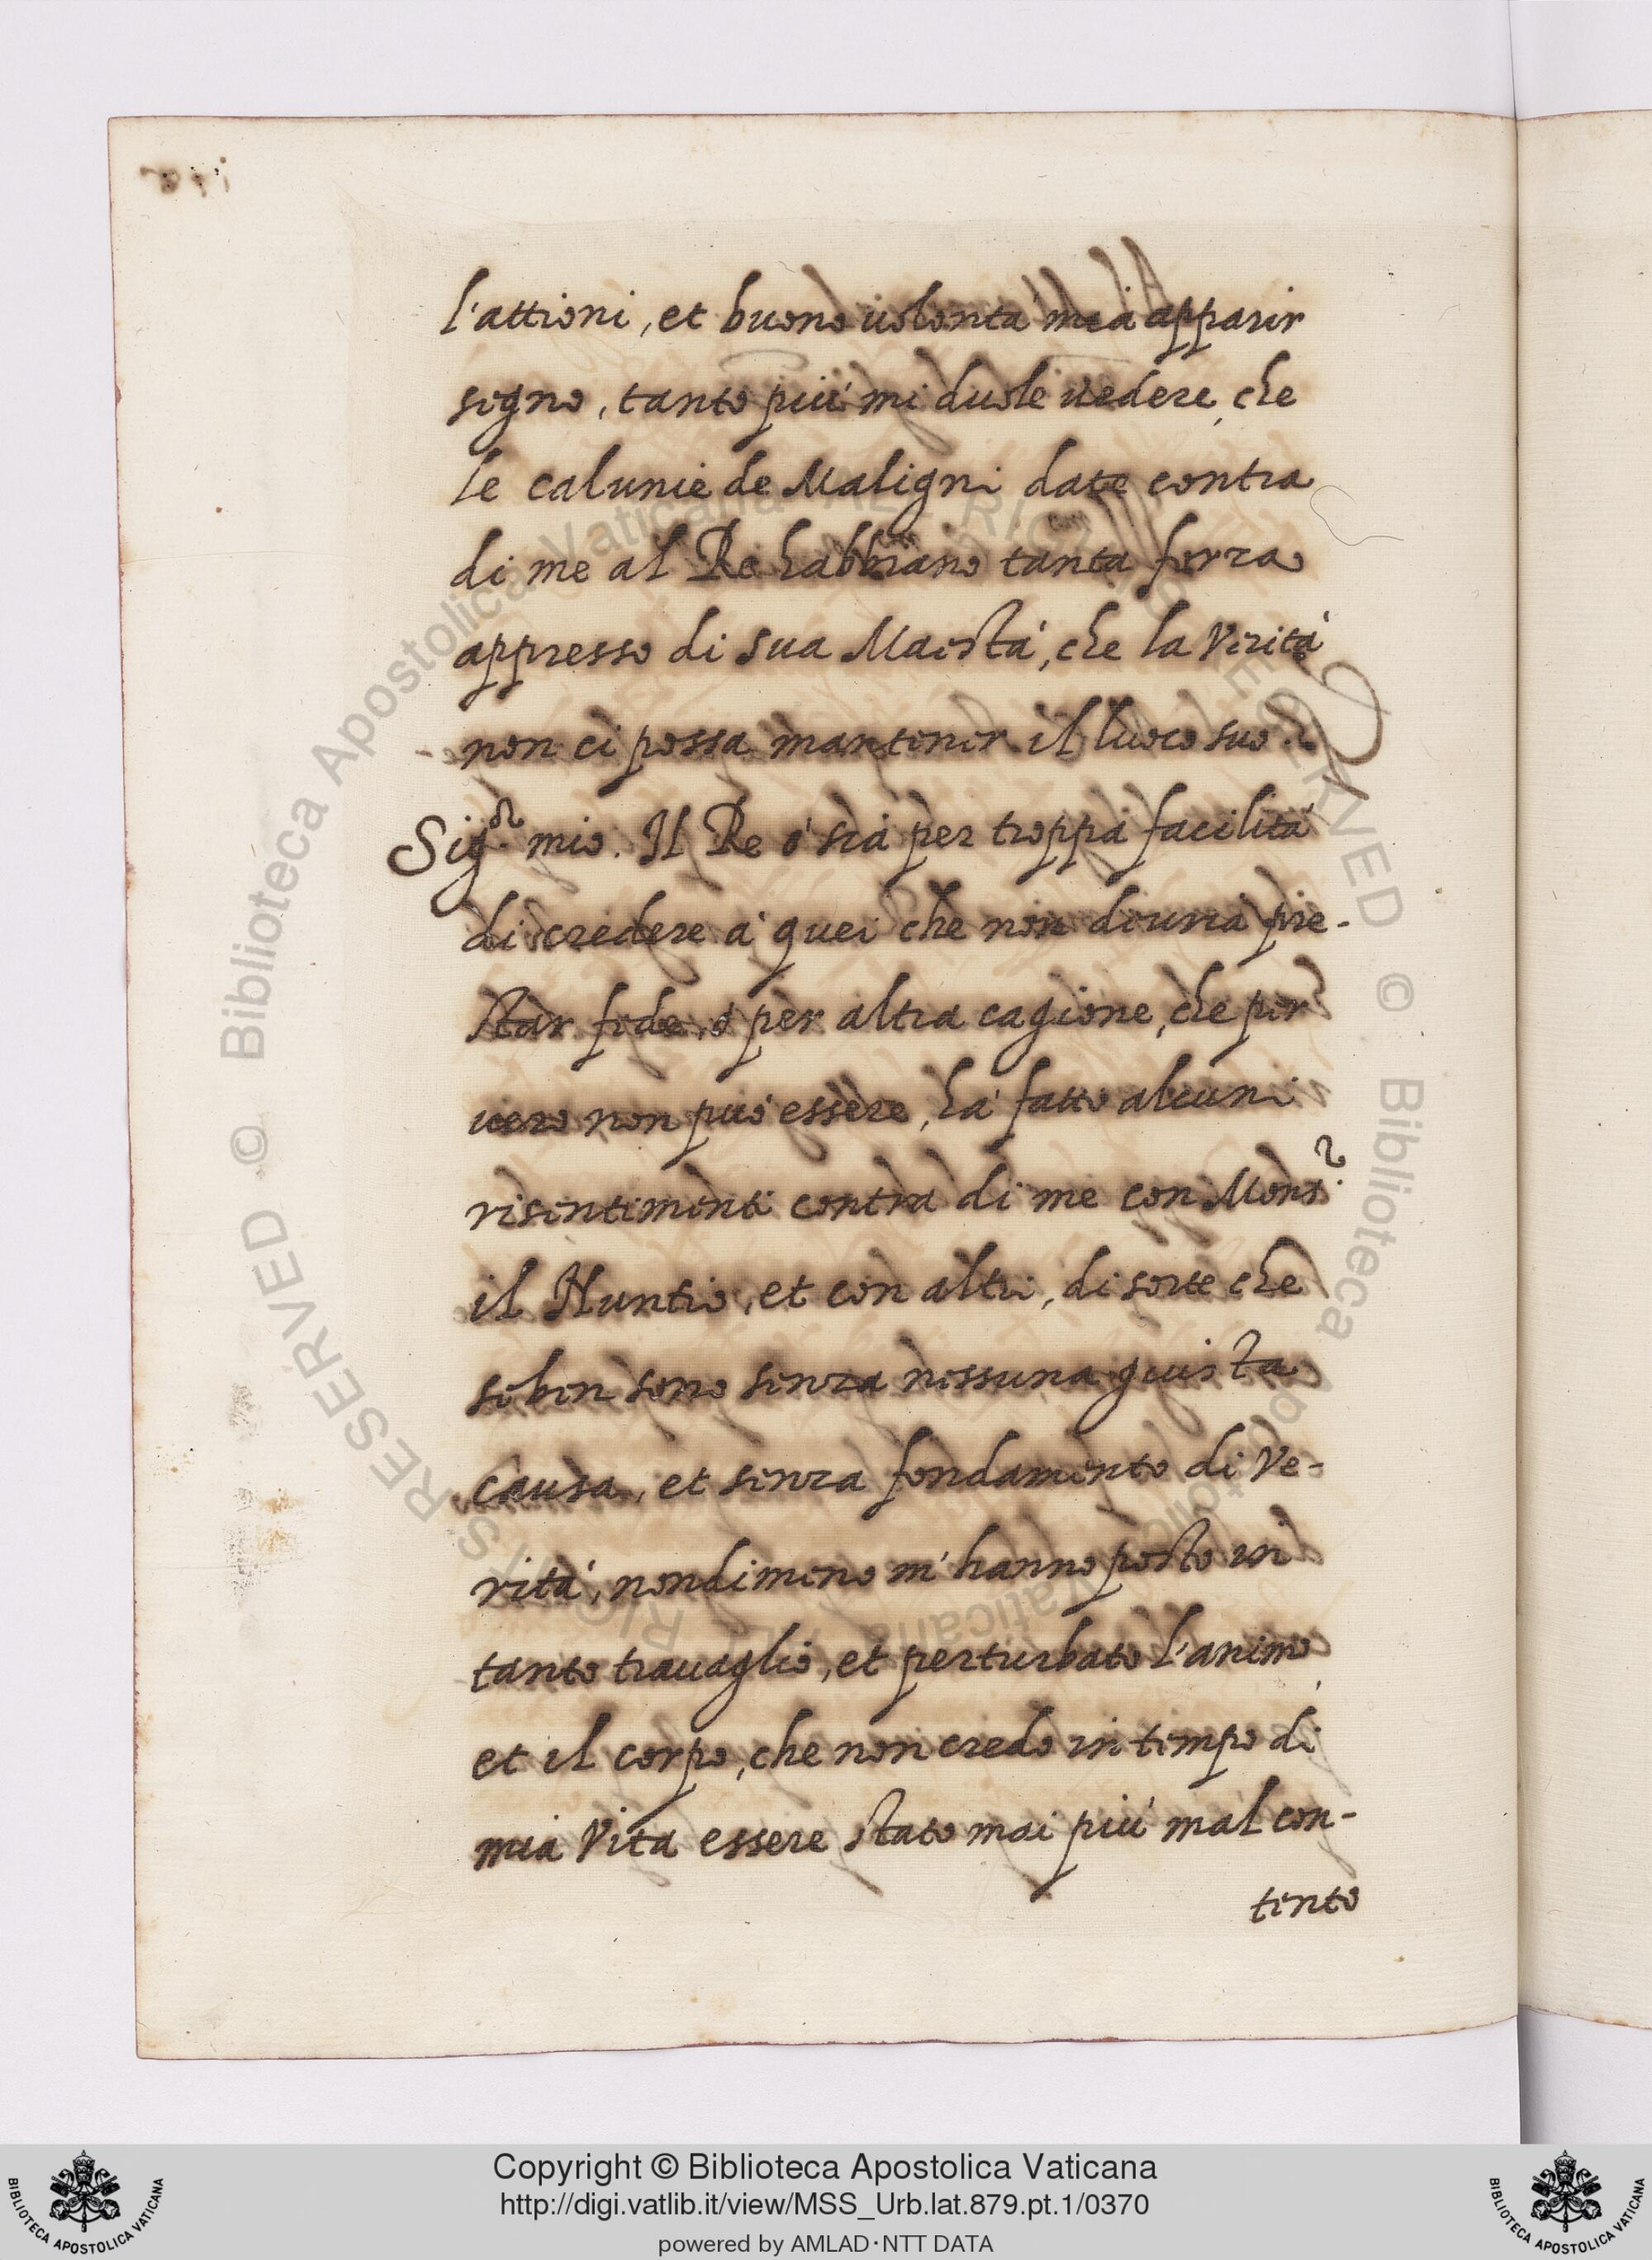 l'attioni, et buona uolonta mia apparir
segno, tanto più mi duole uedere, che
le calunie de Maligni date contra
di me al Re habbiano tanta forza
appresso di sua Maestà, che la Verità
non ci possa mantener il luoco suo.
Sig.or mio. Il Re ó sia per troppa facilità
di credere à quei che non douria pre-
star fede, ó per altra cagione, che per
uero non può essere, hà fatto alcuni
risentimenti contra di me con Mons.r
il Nuntio, et con altri, di sorte che
seben sono senza nessuna giusta
causa, et senza fondamento di Ve-
rità, nondimeno m'hanno posto in
tanto trauaglio, et perturbato l'animo
et il corpo, che non credo in tempo di
mia Vita essere stato mai più mal con-
tento
Copyright © Biblioteca Apostolica Vaticana
http://digi.vatlib.it/view/MSS_Urb.lat.879.pt.1/0370
powered by AMLAD·NTT DATA
BIBLIOTECA APOSTOLICA VATICANA
BIBLIOTECA APOSTOLICA VATICANA